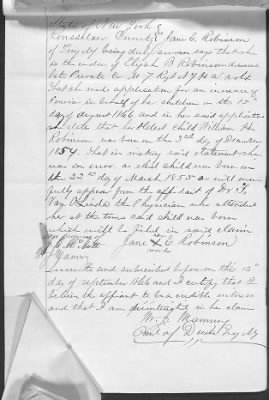 State of New York
Rensselaer County Jane C. Robinson
of Troy NY being duly sworn says that she
is the widow of Elijah B Robinson deceased
late Private Co M 7 Regt N Y H A vols
That she made application for an increase of
Pension in behalf of her children on the 15th
day of August 1866 and in her said application
she state that her oldest child William H
Robinson was born on the 3rd day of December
1854. That in making said statement she
was in error as said child was born on
the 22nd day of March 1855 as will more
fully appear from the affidavit of Dr
the Physician who attended
her at the time said child was born
which will be filed in said claim
Jane X C Robinson
mark
Manning
Sworn to and subscribed before me this 15th
day of September 1866 and I certify that I
believe the affiant to be a credible witness
and that I am disinterested in the claim
W. J. Manning
Com of Deeds Troy NY